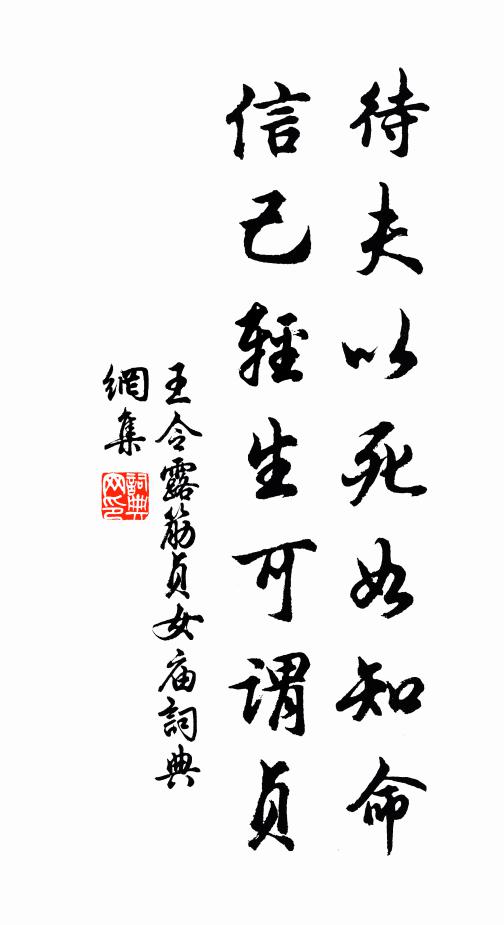 待夫以死如知命
信己輕生可謂贞
王令露筋贞女庙詞典
網集
詞典
网印